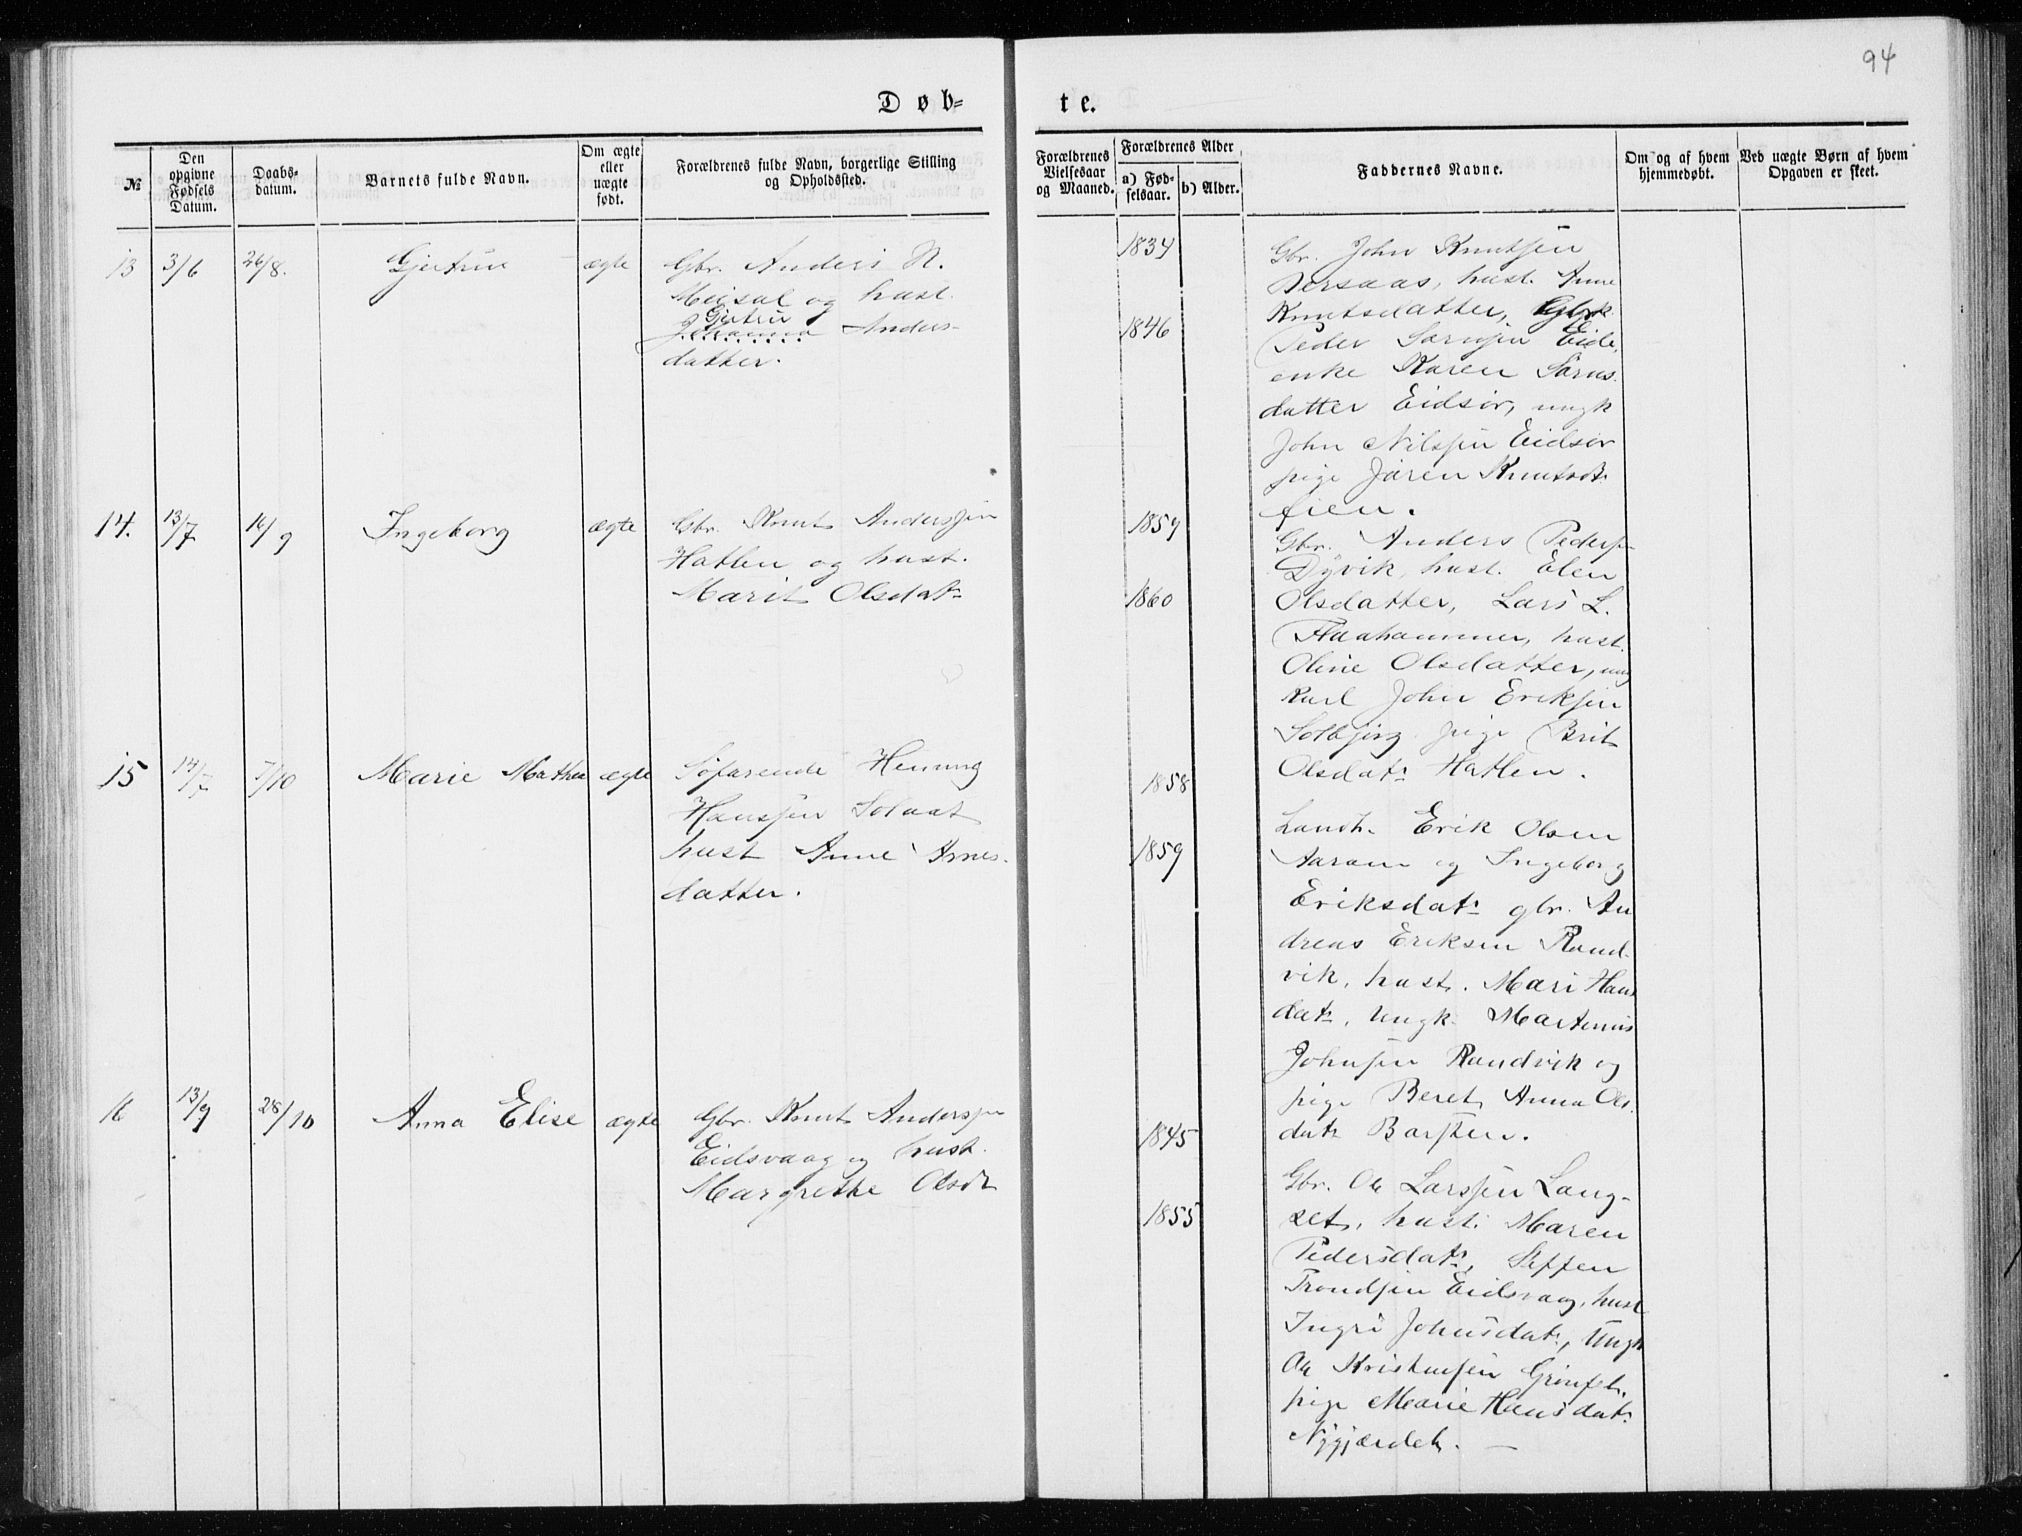 94
Døb-
te.
№
Den opgivne Fødsels Datum.
Daabs-datum.
Barnets fulde Navn.
Om ægte eller uægte født.
Forældrenes fulde Navn, borgerlige Stilling og Opholdssted.
Forældrenes Vielsesaar og Maaned.
Forældrenes Alder
a) Fød-selsaar.
b) Alder.
Faddernes Navne.
Om og af hvem hjemmedøbt.
Ved uægte Børn af hvem Opgaven er skeet.
13
3/6
26/8.
Gjertrue
ægte
Gbr. Anders N.
Meisal og hust.
Gjertru
Johanna Anders-
datter.
1834
1846
Gbr. John Knutsen
hust. Anne
Knutsdatter,
Peder Sørnsen Eide,
enke Karen Sørns-
datter Eidsør, ungk
John Nilssen Eidsør
pige Jaren Knutsdt
fien.
14.
13/7
16/9
Ingeborg
ægte
Gbr. Knut Anderssen
Hatlen og hust.
Marit Olsdat.
1859
1860
Gbr. Anders Peders
Dyvik, hust. Elen
Olsdatter, Lars L.
Flaahammer, hust.
Oline Olsdatter, ung
Karl John Eriksen
Solbjørg pige Brit
Olsdat. Hatlen.
15
14/7
7/10
Marie Mathea
ægte
Søfarende Henning
Hanssen Solaat
hust Anne Arnes-
datter.
1858
1859
Landh. Erik Olsen
Aaram og Ingeborg
Eriksdat. gbr. An
dreas Eriksen Rand-
vik, hust. Mari Hans
dat., Ungk. Martinus
Johnsen Randvik og
pige Beret Anna Ols.
dat. Barsten.
16
13/9
28/10
Anna Elise
ægte
Gbr. Knut Anderssen
Eidsvaag og hust.
Margrethe Olsdt
1845
1855
Gbr. Ole Larssen Lang-
set, hust. Maren
Pedersdat., Steffen
Trondsen Eidsvaag, hust
Ingri Johnsdat., Ungk
Ole Kristensen Grønset,
pige Marie Hansdat.
Nygjærdet.